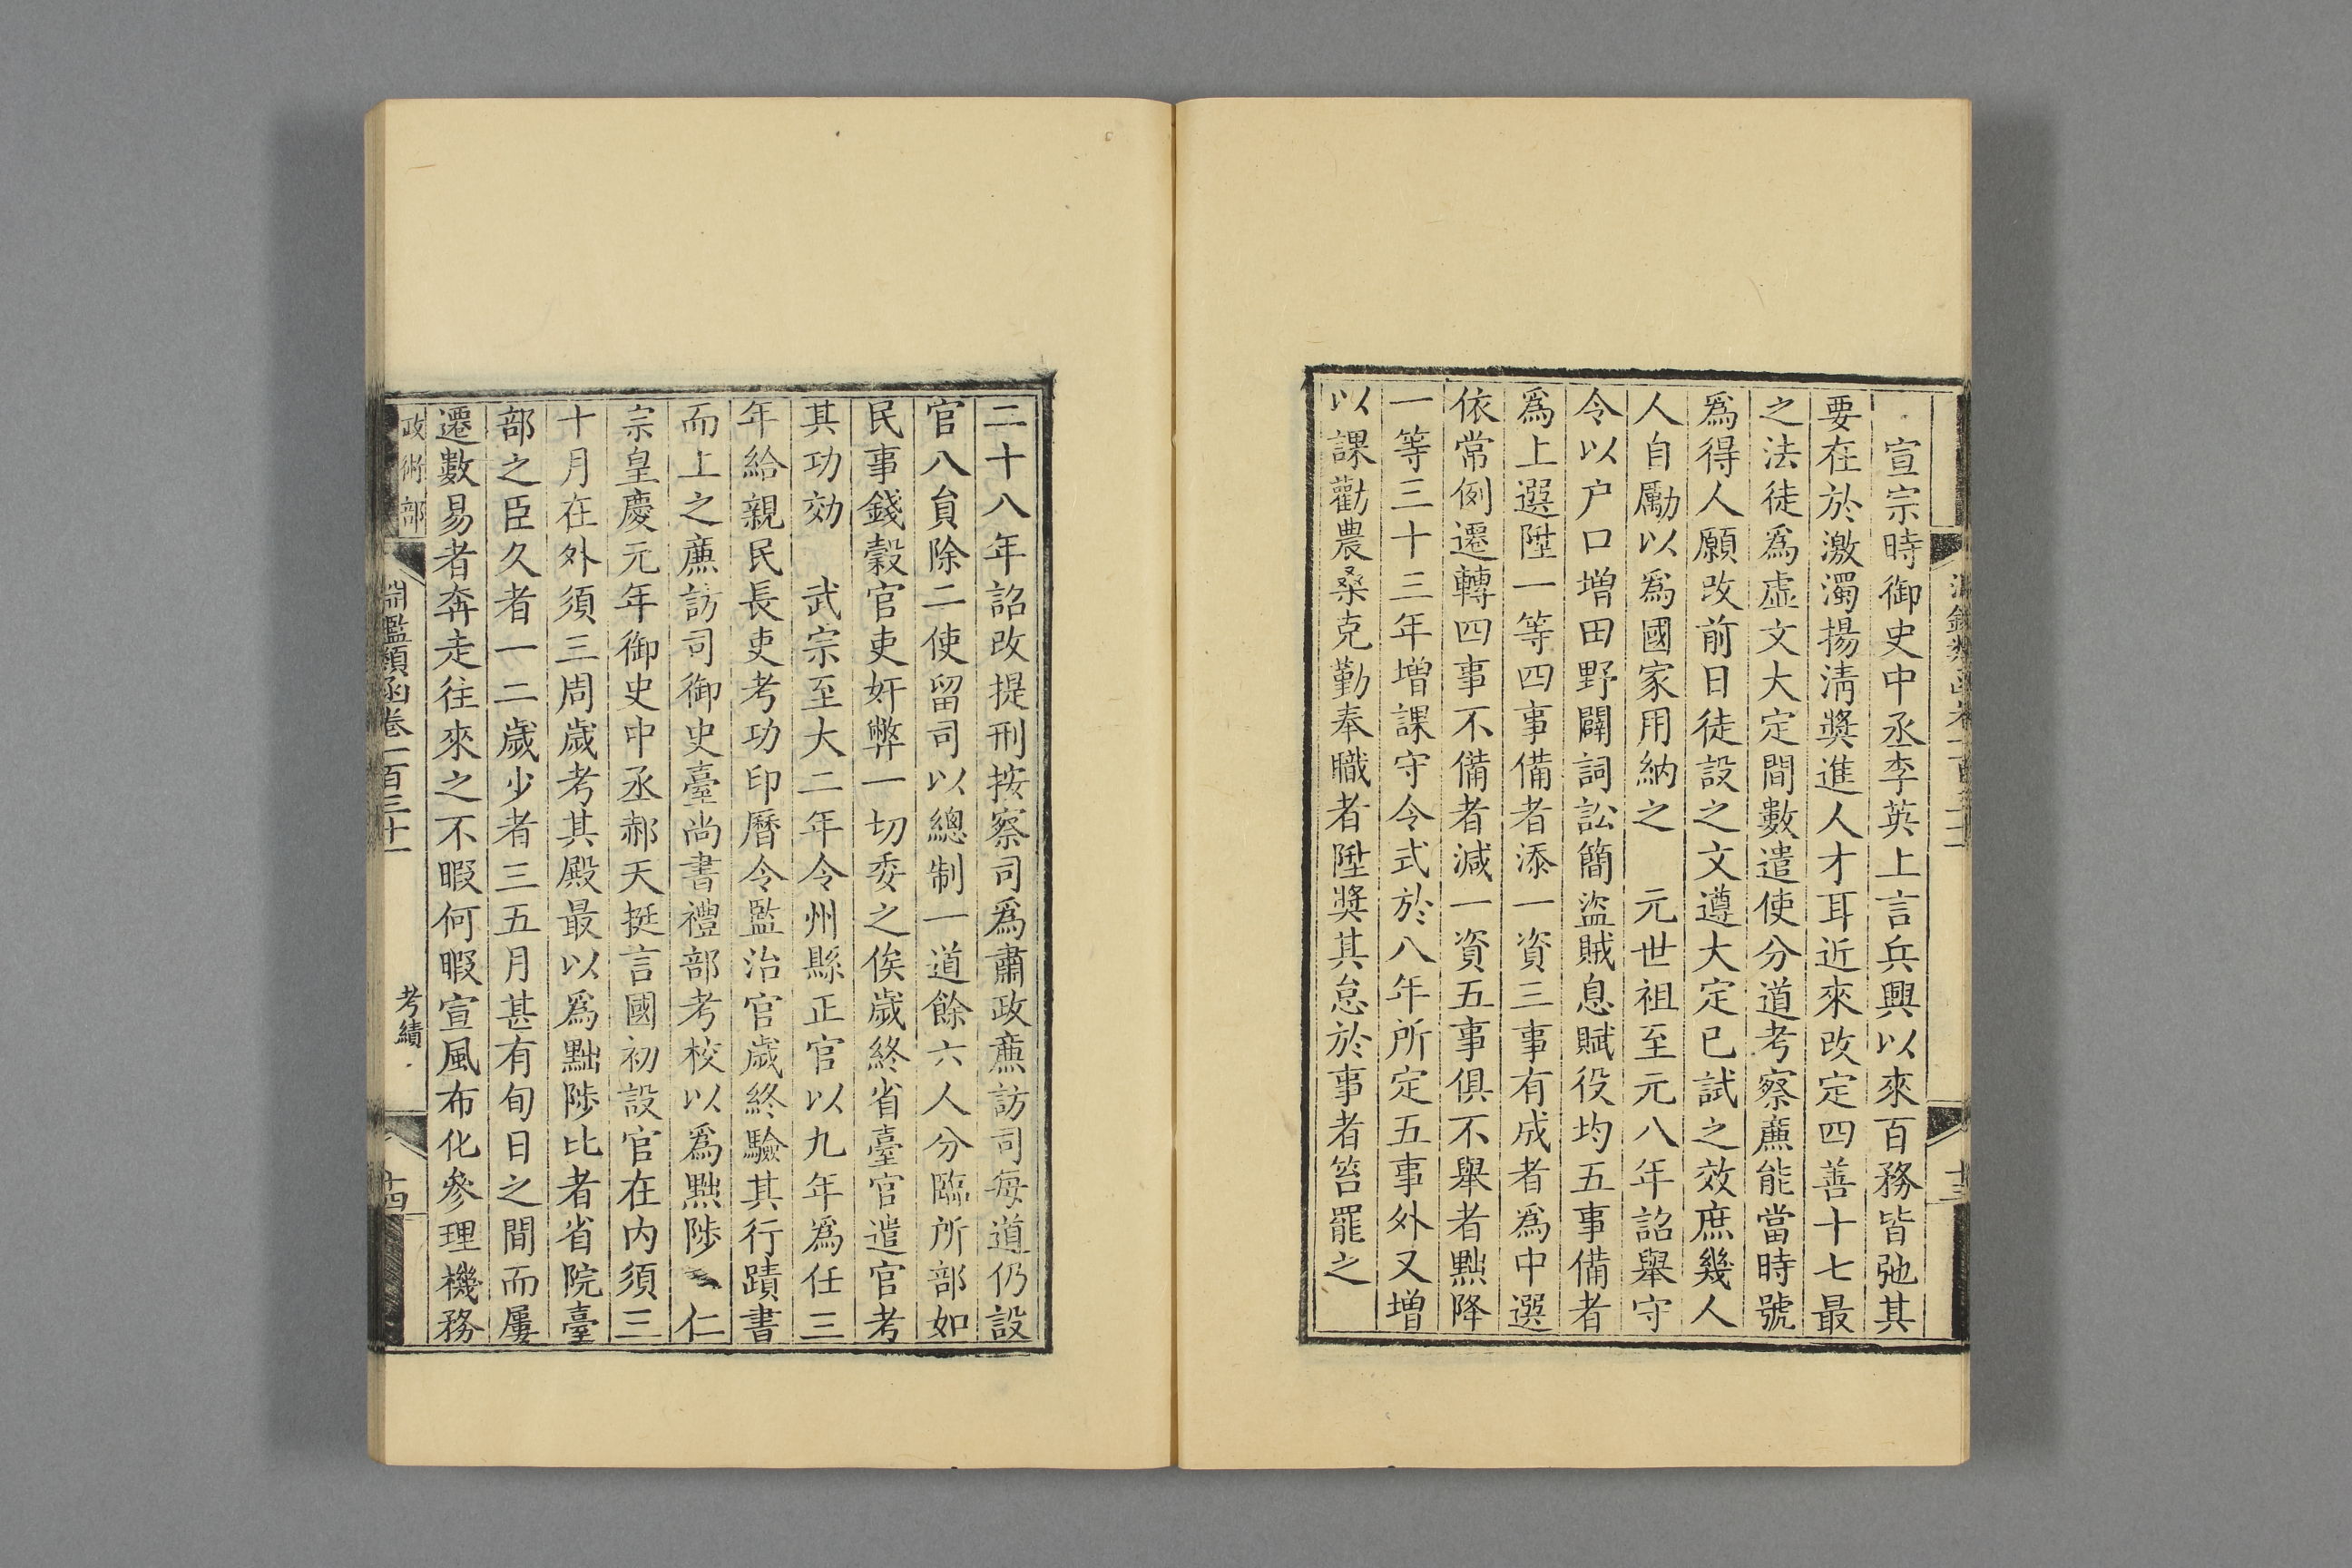 宣宗時御史中丞李英上言兵興以來百務皆弛其
要在於激濁揚淸奬進人才耳近來改定四善十七最
之法徒爲虛文大定間數遣使分道考察廉能當時號
爲得人願改前日徒設之文遵大定已試之效庶幾人
人自勵以爲國家用納之　元世祖至元八年詔舉守
令以户口增田野闢詞訟簡盜賊息賦役均五事備者
爲上選陞一等四事備者添一資三事有成者爲中選
依常例遷轉四事不備者減一資五事俱不舉者黜降
一等三十三年增課守令式於八年所定五事外又增
以課勸農桑克勤奉職者陞奬其怠於事者笞罷之
二十八年詔改提刑按察司爲肅政廉訪司每道仍設
官八員除二使留司以總制一道餘六人分臨所部如
民事錢穀官吏奸弊一切委之俟歲終省臺官遣官考
其功効　武宗至大二年令州縣正官以九年爲任三
年給親民長吏考功印曆令監治官歲終驗其行蹟書
而上之廉訪司御史臺尚書禮部考校以爲黜陟　仁
宗皇慶元年御史中丞郝天挺言國初設官在内須三
十月在外須三周歲考其殿最以爲黜陟比者省院臺
部之臣久者一二歲少者三五月甚有旬日之間而屢
遷數易者奔走往來之不暇何暇宣風布化參理機務
政術部　淵鑑類函卷一百三十一　考績　十四